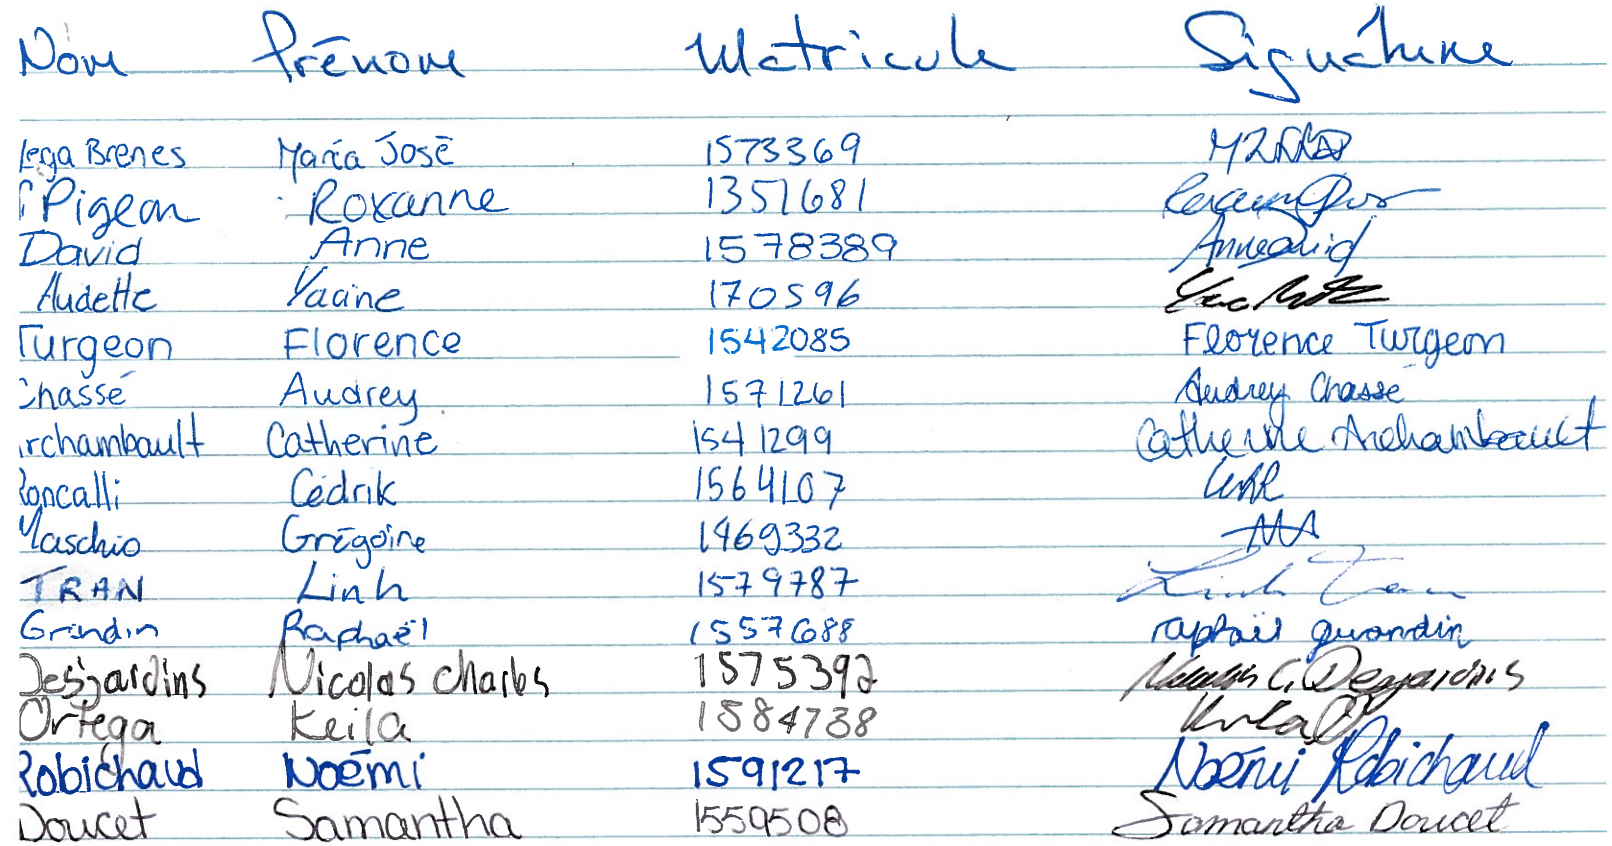 Nom Prénom Matricule Signature
lega Brenes María José 1573369
Pigeon Roxanne 1351681
David Anne 1578389 Anne David
Audette Yacine 170596
Turgeon Florence 1542085 Florence Turgeon
Chassé Audrey 1571261 Audrey Chassé
rchambault Catherine 1541299 Catherine Archambault
Roncalli Cédrik 1564107
Maschio Grégoire 1469332
TRAN Linh 1579787 Linh Tran
Grondin Raphaël 1557688 raphaël grondin
Desjardins Nicolas Charles 1575392 Nicolas C. Desjardins
Ortega Keila 1584738 Keila O
Robichaud Noémi 1591217 Noémi Robichaud
Doucet Samantha 1559508 Samantha Doucet